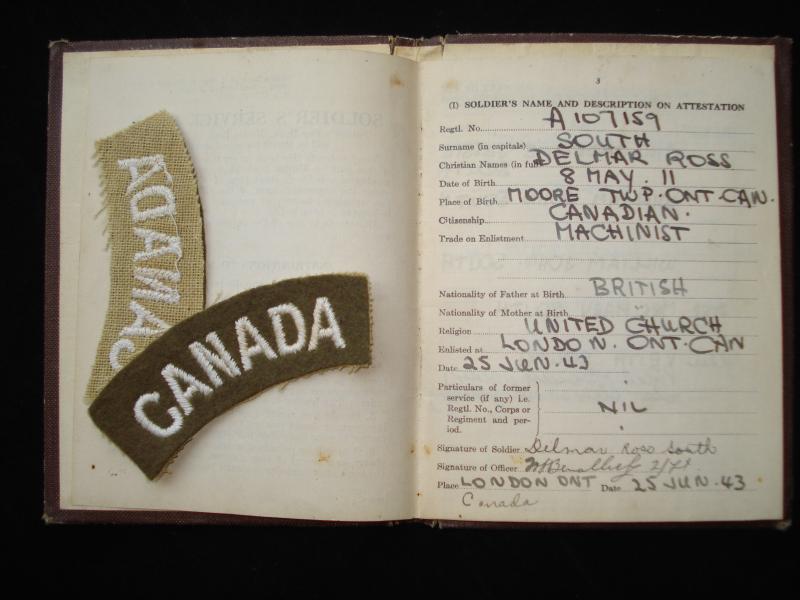 CANADA
CANADA
3
(I) SOLDIER'S NAME AND DESCRIPTION ON ATTESTATION
Regtl. No. A107159
Surname (in capitals) SOUTH
Christian Names (in full) DELMAR ROSS
Date of Birth 8 MAY. 11
Place of Birth MOORE TWP. ONT. CAN.
Citizenship CANADIAN.
Trade on Enlistment MACHINIST
Nationality of Father at Birth BRITISH
Nationality of Mother at Birth "
Religion UNITED CHURCH
Enlisted at LONDON. ONT. CAN
Date 25 JUN. 43
Particulars of former
service (if any) i.e.
Regtl. No., Corps or NIL
Regiment and per-
iod.
Signature of Soldier Delmar Ross South
Signature of Officer
Place LONDON ONT Date 25 JUN. 43
Canada